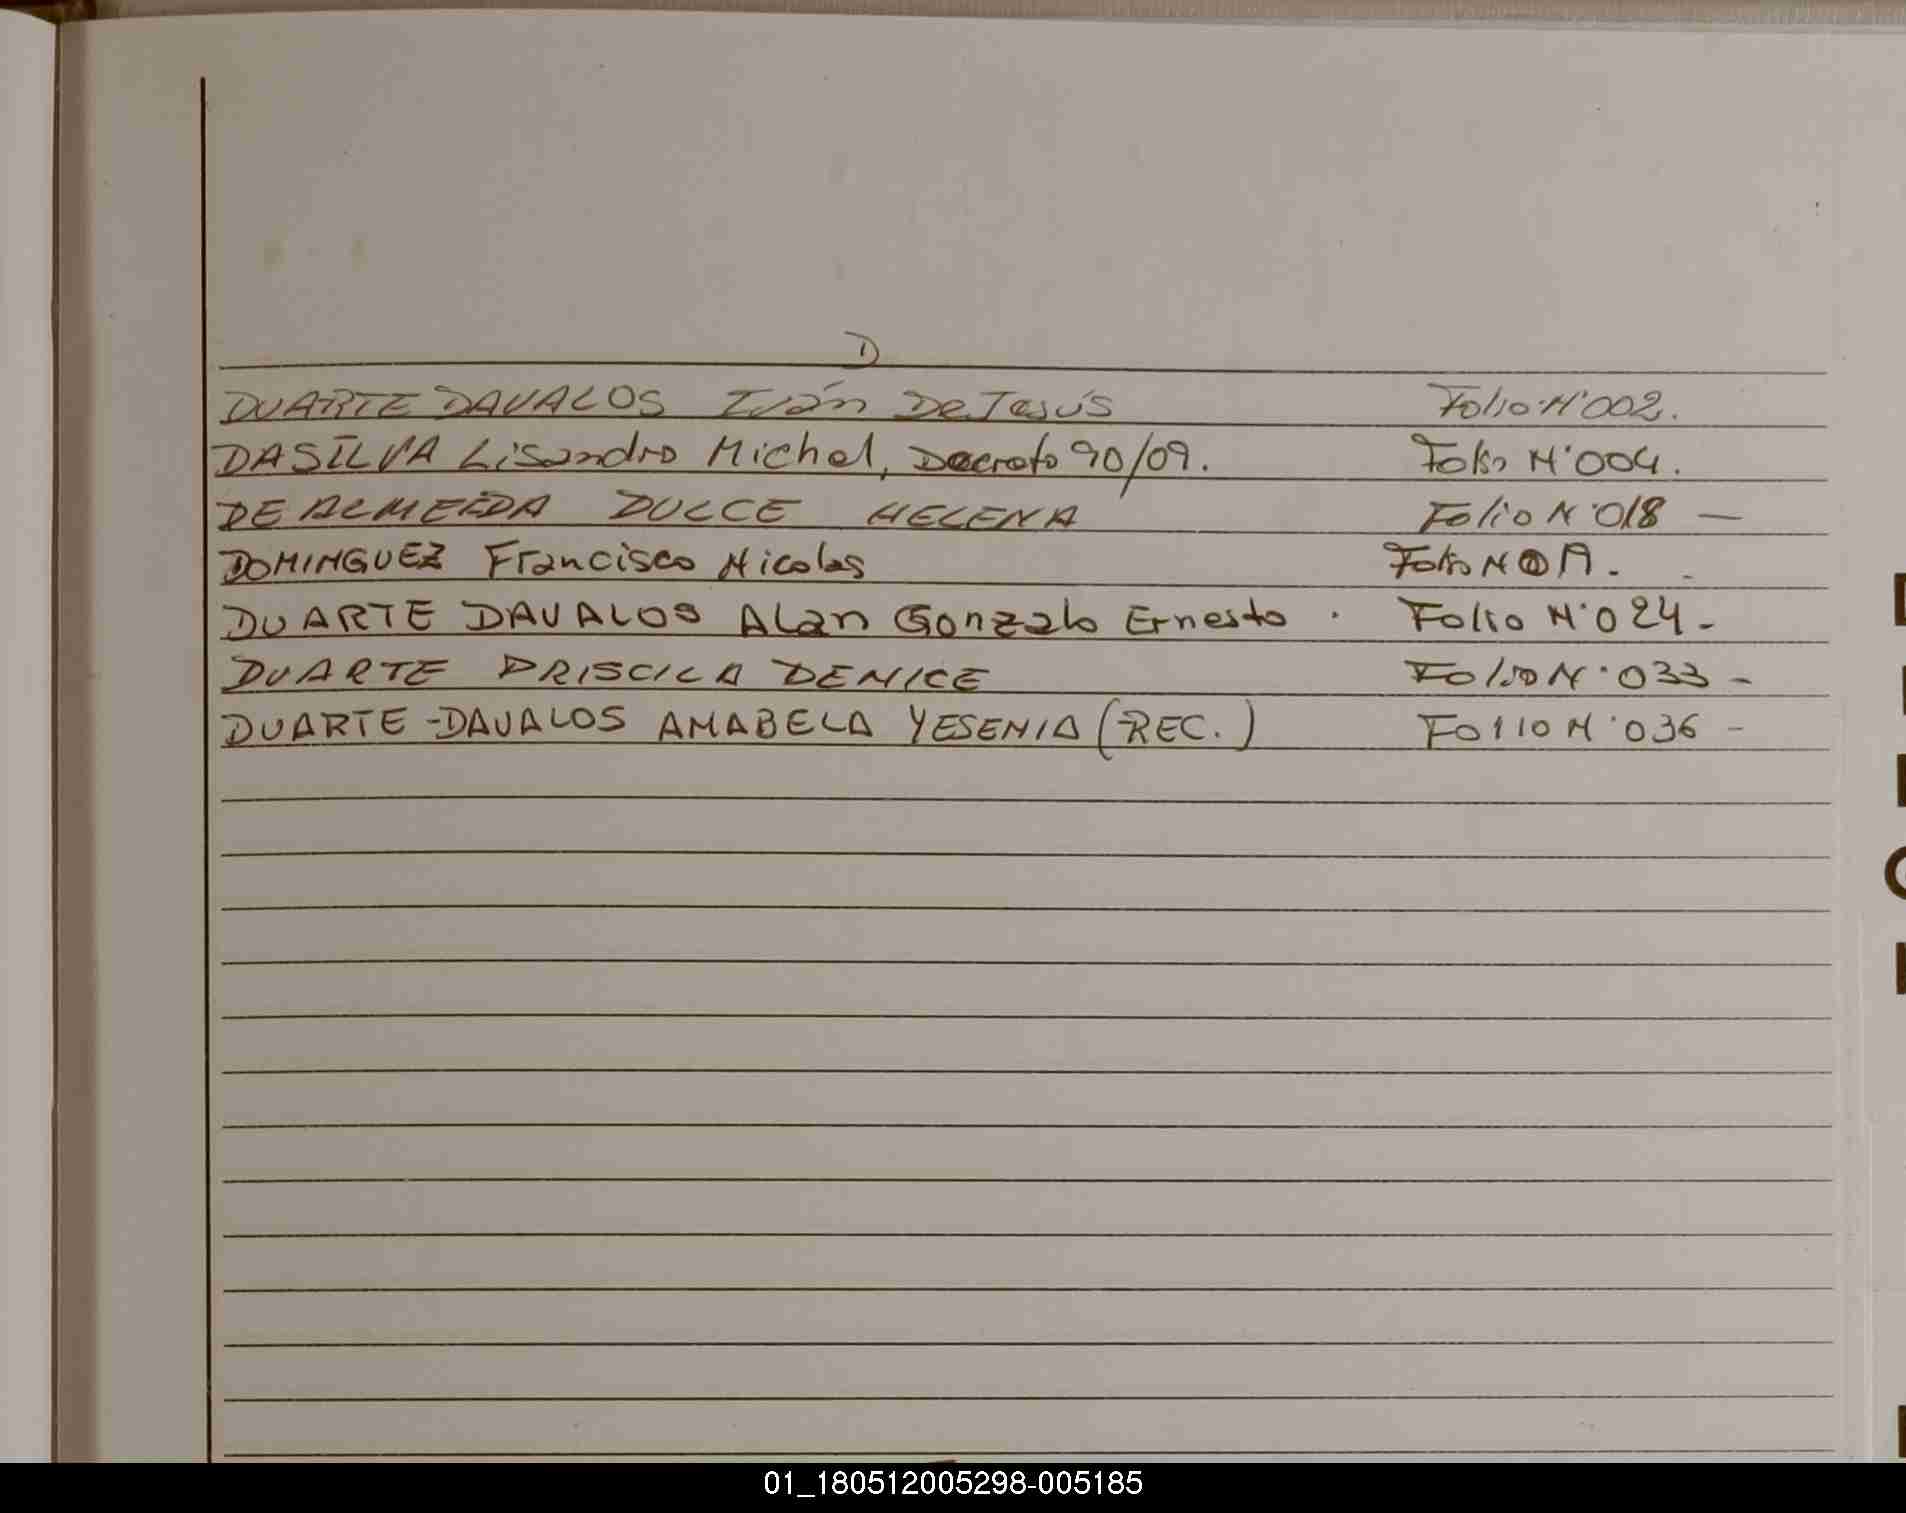 D
DUARTE DAVALOS Iván De Jesús Folio N°002.
DASILVA Lisandro Michel, Decreto 90/09. Folio N°004.
DE ALMEIDA DULCE HELENA Folio N°018 —
DOMINGUEZ Francisco Nicolas Folio N
DUARTE DAVALOS Alan Gonzalo Ernesto . Folio N°024-
DUARTE PRISCILA DENICE Folio N°033-
DUARTE-DAVALOS ANABELA YESENIA (REC.) Folio N°036-
01_180512005298-005185